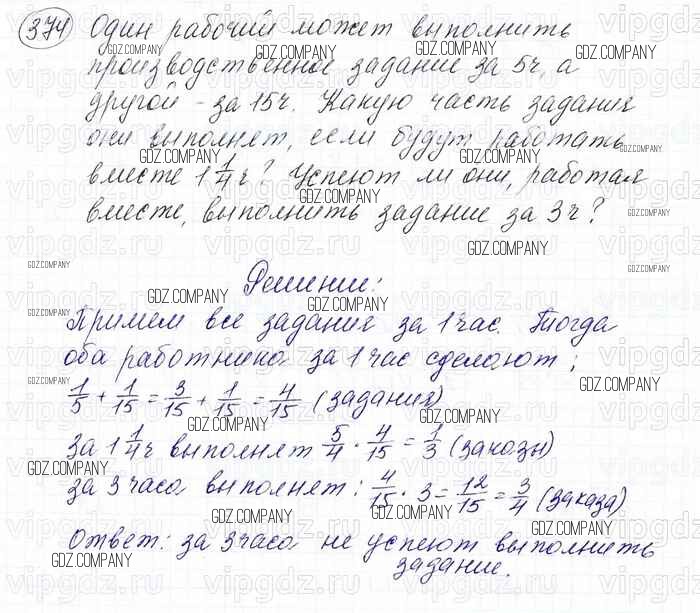 374 Один рабочий может выполнить
производственное задание за 5ч, а
другой - за 15ч. Какую часть задания
они выполнят, если будут работать
вместе 1 1/4 ч? Успеют ли они, работая
вместе, выполнить задание за 3ч?
Решение:
Примем все задания за 1 час. Тогда
оба работника за 1 час сделают;
1/5 + 1/15 = 3/15 + 1/15 = 4/15 (задания)
За 1 1/4 ч выполнят 5/4 · 4/15 = 1/3 (заказы)
за 3 часа выполнят: 4/15 · 3 = 12/15 = 3/4 (заказа)
Ответ: за 3 часа не успеют выполнить
задание.
GDZ.COMPANY
vipgdz.ru